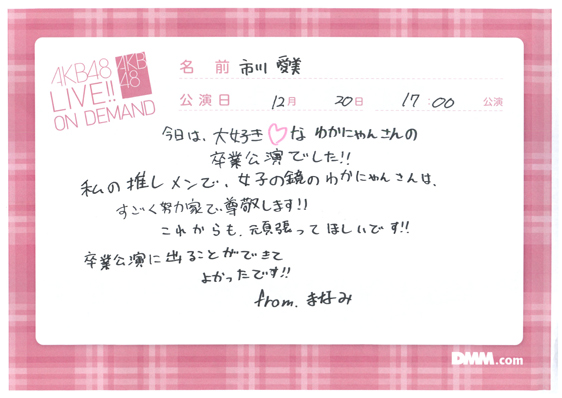 AKB48
AKB
48
LIVE!!
ON DEMAND
名 前 市川 愛美
公演日 12月 20日 17:00 公演
今日は、大好き♡な わかにゃんさんの
卒業公演でした!!
私の推しメンで、女子の鏡のわかにゃんさんは、
すごく努力家で、尊敬します!!
これからも、頑張ってほしいです!!
卒業公演に出ることができて
よかったです!!
from. まなみ
DMM.com